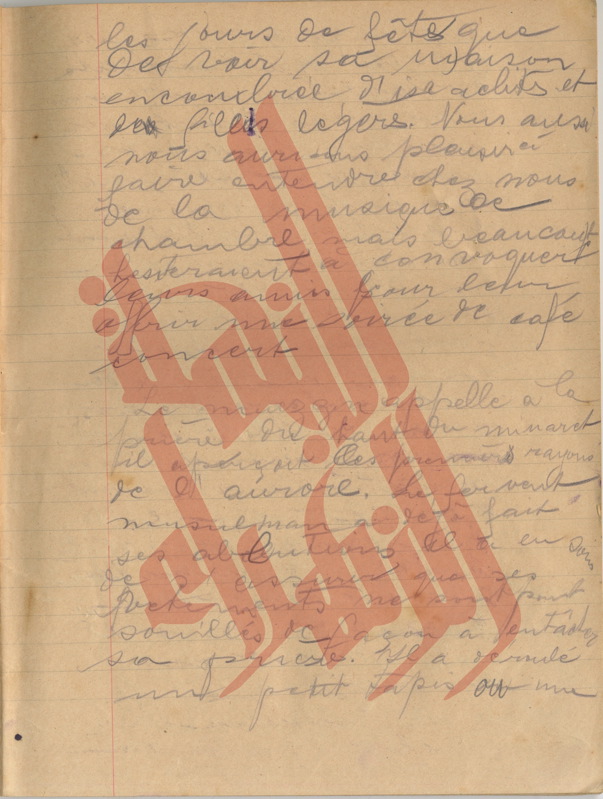 les jours de fêtes que
de voir sa maison
encombrée d' et
les filles légères. Nous aussi
nous aurions plaisir à
faire entendre chez nous
de la musique de
chambre, mais beaucoup
hesiteraient à convoquer
leurs amis pour leur
offrir une soirée de café
concert
Le muezzin appelle à la
prière du haut du minaret
il aperçoit les premiers rayons
de l'aurore. Le fervent
musulman a déjà fait
ses ablutions. Il a eu soin
de s'assurer que ses
vêtements ne sont point
souillés de façon à entâcher
sa prière. Il a déroulé
un petit tapis ou une